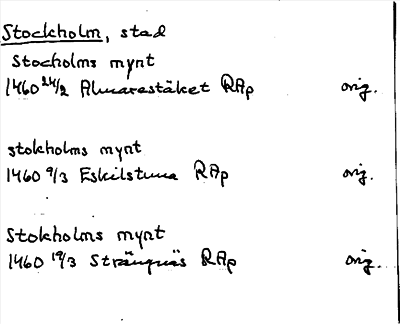 Stockholm, stad
Stocholms mynt
1460 24/2 Almarestäket RAp orig.
stokholms mynt
1460 9/3 Eskilstuna RAp orig.
Stokholms mynt
1460 19/3 Strängnäs RAp orig.